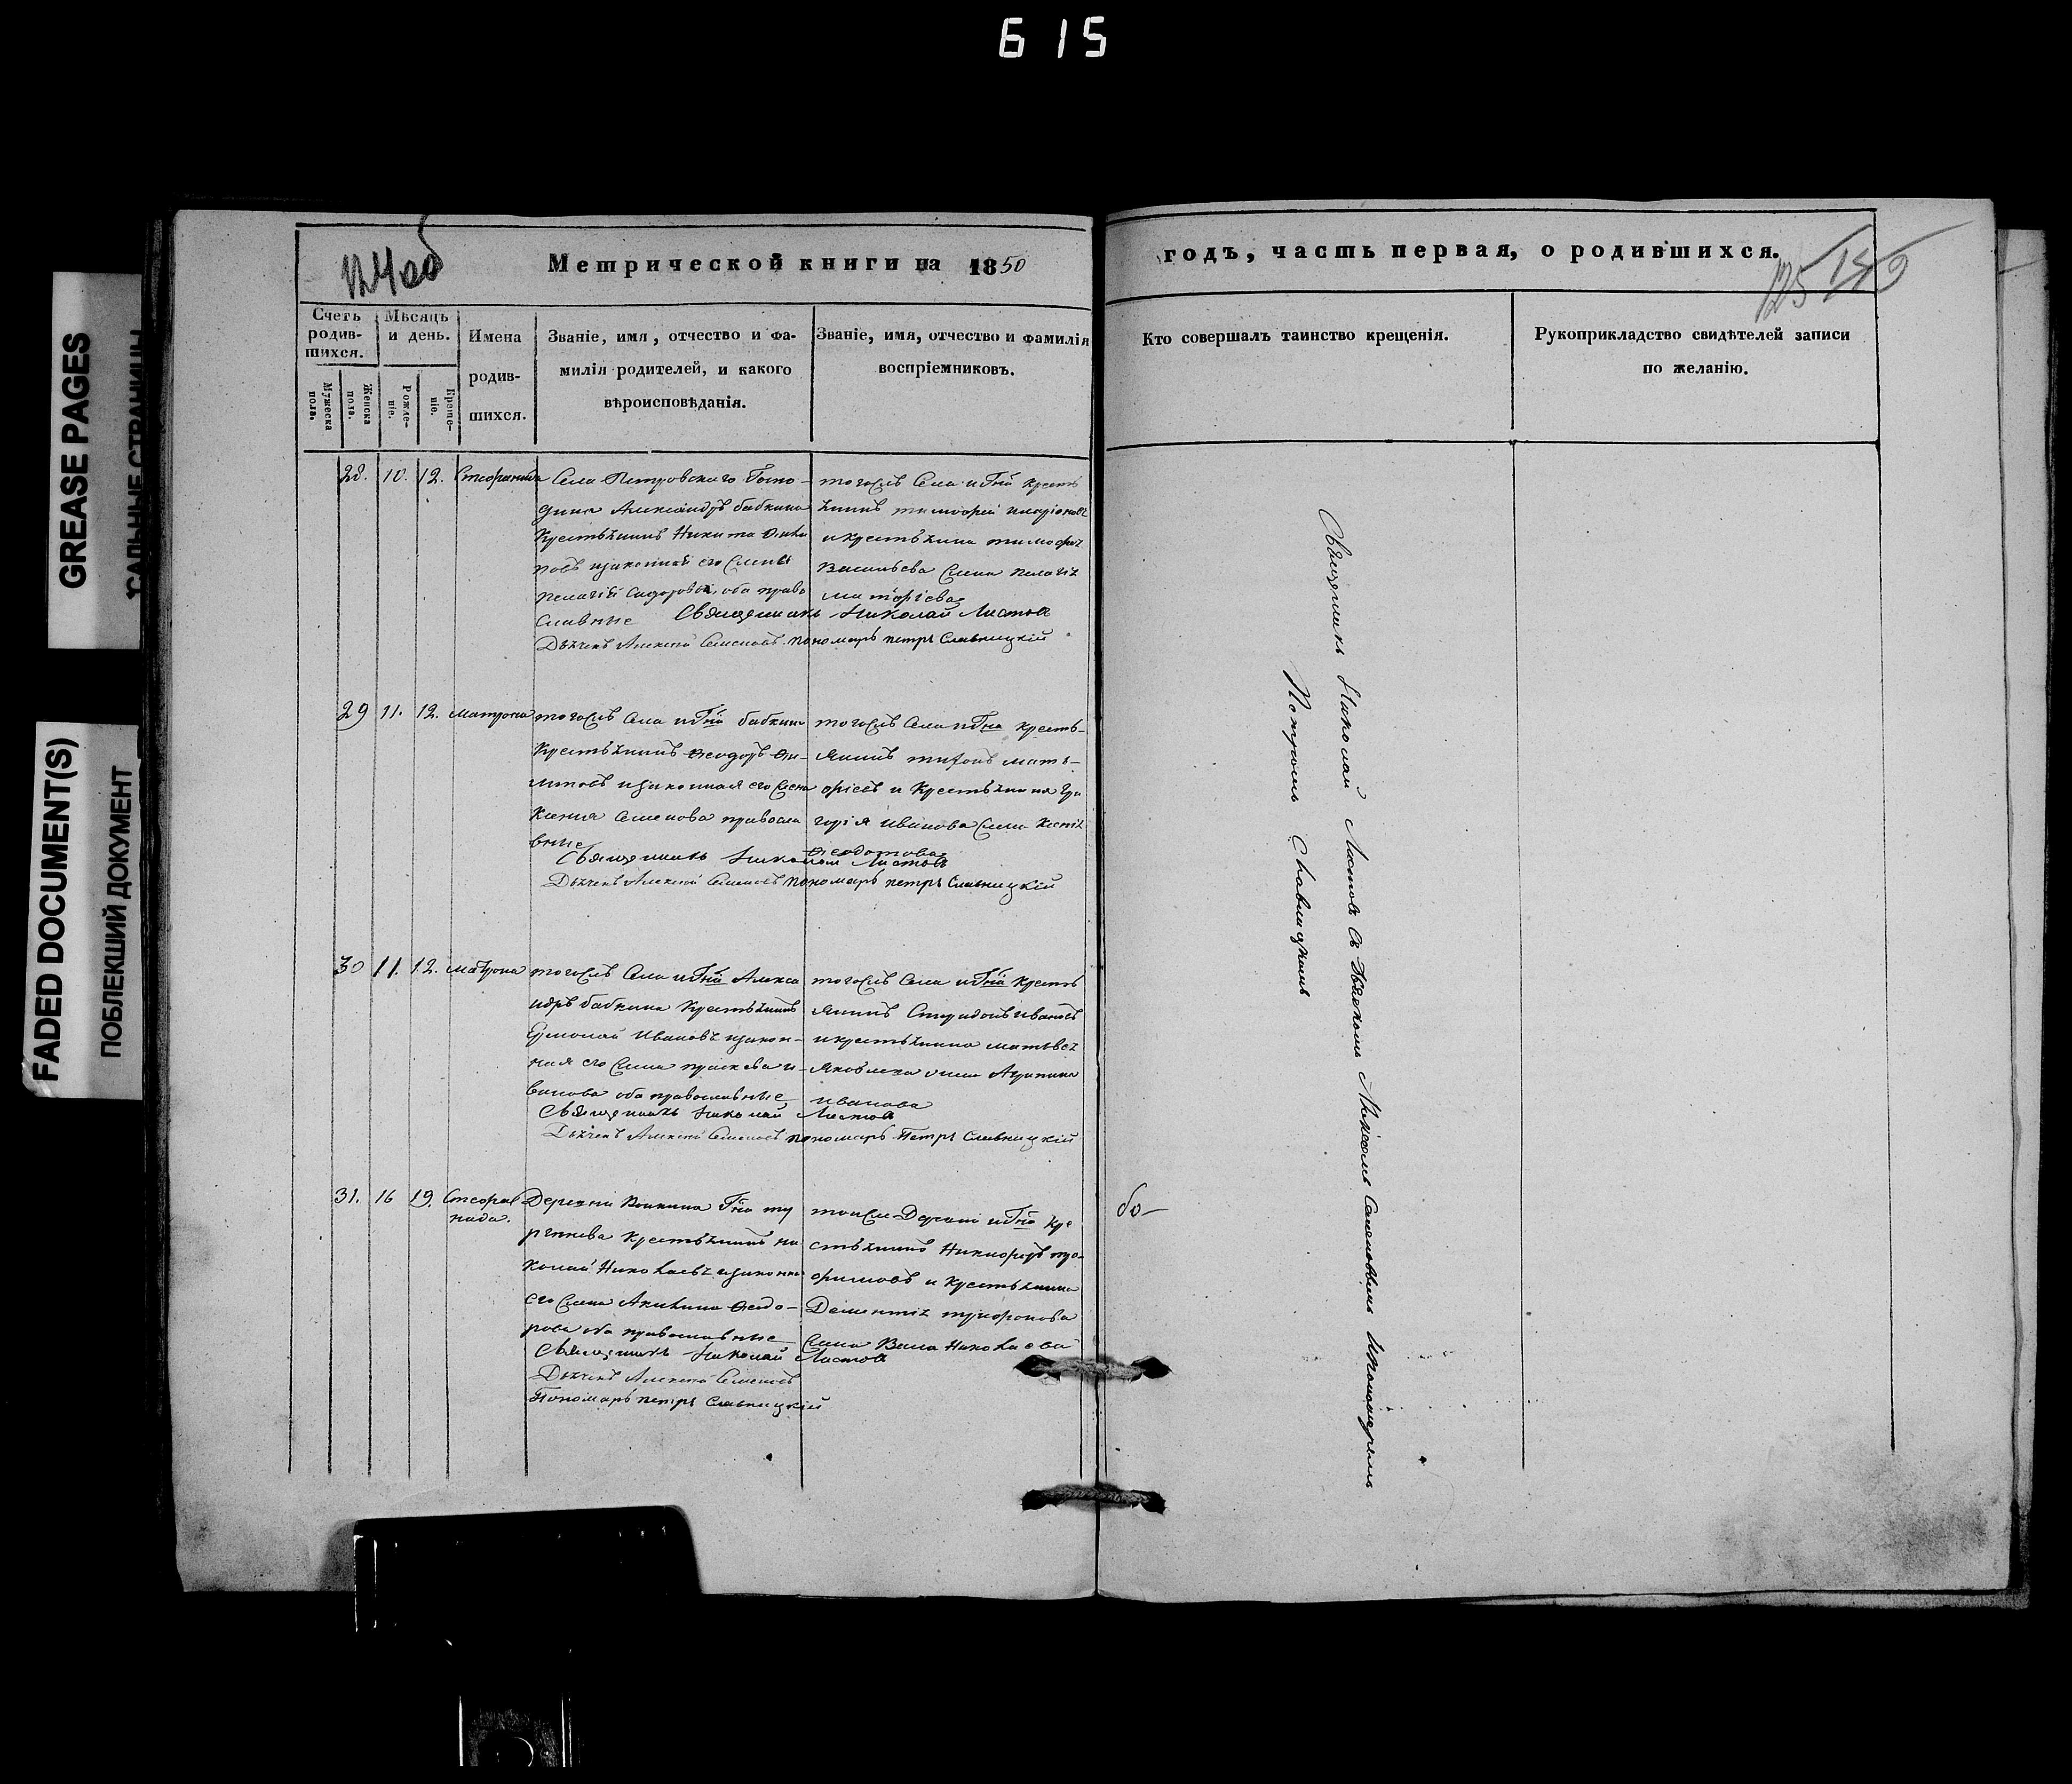 615
GREASE PAGES
FADED DOCUMENT(S)
ПОБЛЕКШИЙ ДОКУМЕНТ
124об
Метрической книги на 1850
годъ, часть первая, о родившихся.
125
Счетъ родившихся.
Мужеска пола.
Женска пола.
Мѣсяцъ и день.
Рожденіе.
Крещеніе.
Имена
родив-
шихся.
Званіе, имя, отчество и фа-
милія родителей, и какого
вѣроисповѣданія.
Званіе, имя, отчество и фамилія
воспріемниковъ.
Кто совершалъ таинство крещенія.
Рукоприкладство свидѣтелей записи
по желанію.
28. 10. 12. Стефанида
Села Петровскаго Госпо-
дина Александръ бабкина
Крестьянинъ Никита
законная его Жена
Пелагія Сидорова, оба право
славные
тогожъ Села и Гна Крестья
янинъ тимофей иларіоновъ
и крестьянина тимофея
Васильева Жена Пелагія
Священникъ Николай Листовъ
Дьячекъ Алексей Семеновъ пономарь петръ Славницкій
29 11. 12. Матрона
тогожъ Села и Гна бабкина
Крестьянинъ Феодоръ
законная его Жена
Ксенія Семенова правосла
вные
тогожъ Села и Гна Кресть-
янинъ тихонъ мат-
фіевъ и Крестьянина Гри
горія Иванова Жена
Феодотова
Священникъ Николай Листовъ
Дьячекъ Алексей Семеновъ пономарь петръ Славницкій
30 11. 12. матрона
тогожъ Села и Гна Алекса
ндръ бабкина Крестьянинъ
Ермолай Ивановъ закон-
ная его Жена праскева и-
ванова оба православные
тогожъ Села и Гна Кресть
янинъ Спиридонъ Ивановъ
и крестьянина матвея
Яковлева жена Агрипина
иванова
Священникъ Николай Листовъ
Дьячекъ Алексей Семеновъ пономарь Петръ Славницкій
31. 16 19. Стефанида.
Деревни Гна ту
ргенева Крестьянинъ ни
колай Николаевъ, законна
его Жена Акилина Феодо-
рова оба православные
тоеже Деревни и Гна Кре
стьянинъ Никифоръ тро-
фимовъ и Крестьянина
Дементія трифонова
Жена Николаева
Священникъ Николай Листовъ
Дьячекъ Алексей Семеновъ
Пономарь петръ Славницкій
Священникъ Николай Листовъ съ дьячкомъ Алексеемъ Семеновымъ и пономаремъ
Петромъ Славницкимъ